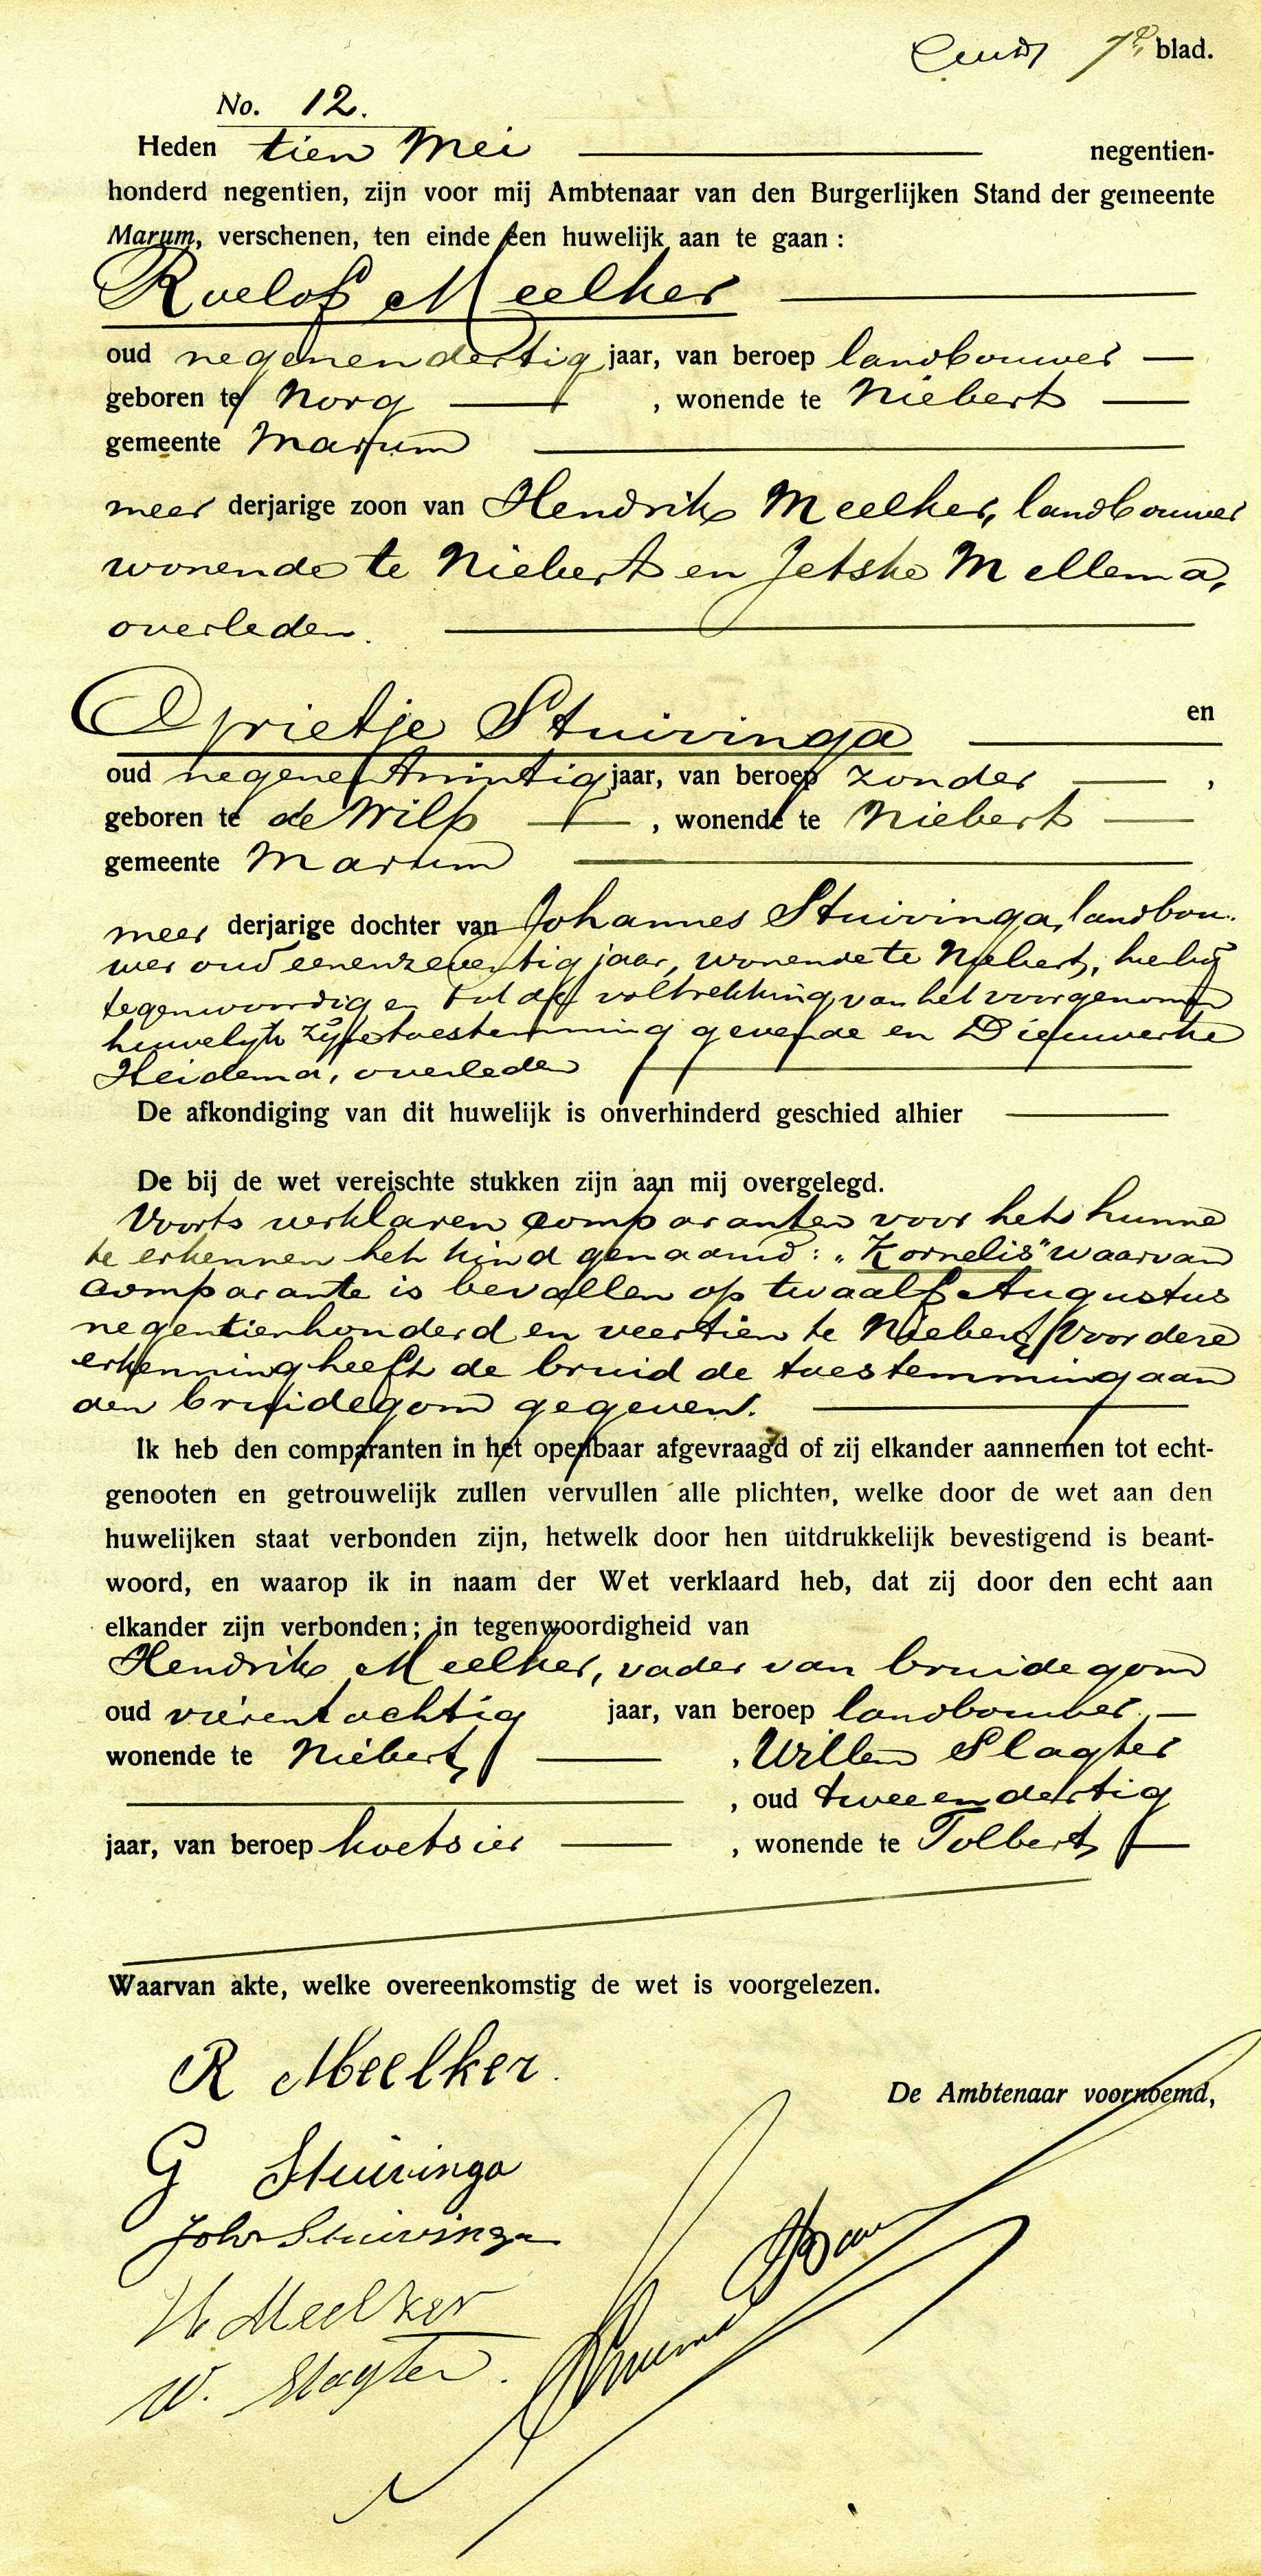 7e blad.
No. 12.
Heden tien Mei negentien-
honderd negentien, zijn voor mij Ambtenaar van den Burgerlijken Stand der gemeente
Marum, verschenen, ten einde een huwelijk aan te gaan :
Roelof Meelker
oud negenendertig jaar, van beroep landbouwer
geboren te Norg , wonende te Niebert
gemeente Marum
meer derjarige zoon van Hendrik Meelker, landbouwer
wonende te Niebert en Jetske Mellema,
overleden.
en
Grietje Stuivinga
oud negenentwintig jaar, van beroep zonder ,
geboren te de Wilp , wonende te Niebert
gemeente Marum
meer derjarige dochter van Johannes Stuivinga, landbou-
wer oud eenenzeventig jaar, wonende te Niebert, hierbij
tegenwoordig en tot de voltrekking van het voorgenomen
huwelijk zijne toestemming gevende en Dieuwerke
Heidema, overleden
De afkondiging van dit huwelijk is onverhinderd geschied alhier
De bij de wet vereischte stukken zijn aan mij overgelegd.
Voorts verklaren comparanten voor het hunne
te erkennen het kind genaamd: „Kornelis" waarvan
comparante is bevallen op twaalf Augustus
negentienhonderd en veertien te Niebert, Voor deze
erkenning heeft de bruid de toestemming aan
den bruidegom gegeven.
Ik heb den comparanten in het openbaar afgevraagd of zij elkander aannemen tot echt-
genooten en getrouwelijk zullen vervullen alle plichten, welke door de wet aan den
huwelijken staat verbonden zijn, hetwelk door hen uitdrukkelijk bevestigend is beant-
woord, en waarop ik in naam der Wet verklaard heb, dat zij door den echt aan
elkander zijn verbonden; in tegenwoordigheid van
Hendrik Meelker, vader van bruidegom
oud vierentachtig jaar, van beroep landbouwer
wonende te Niebert, , Willem Slagter
, oud tweeendertig
jaar, van beroep koetsier , wonende te Tolbert
Waarvan akte, welke overeenkomstig de wet is voorgelezen.
R Meelker.
De Ambtenaar voornoemd,
G Stuivinga
Joh Stuivinga
H Meelker
W. Slagter.